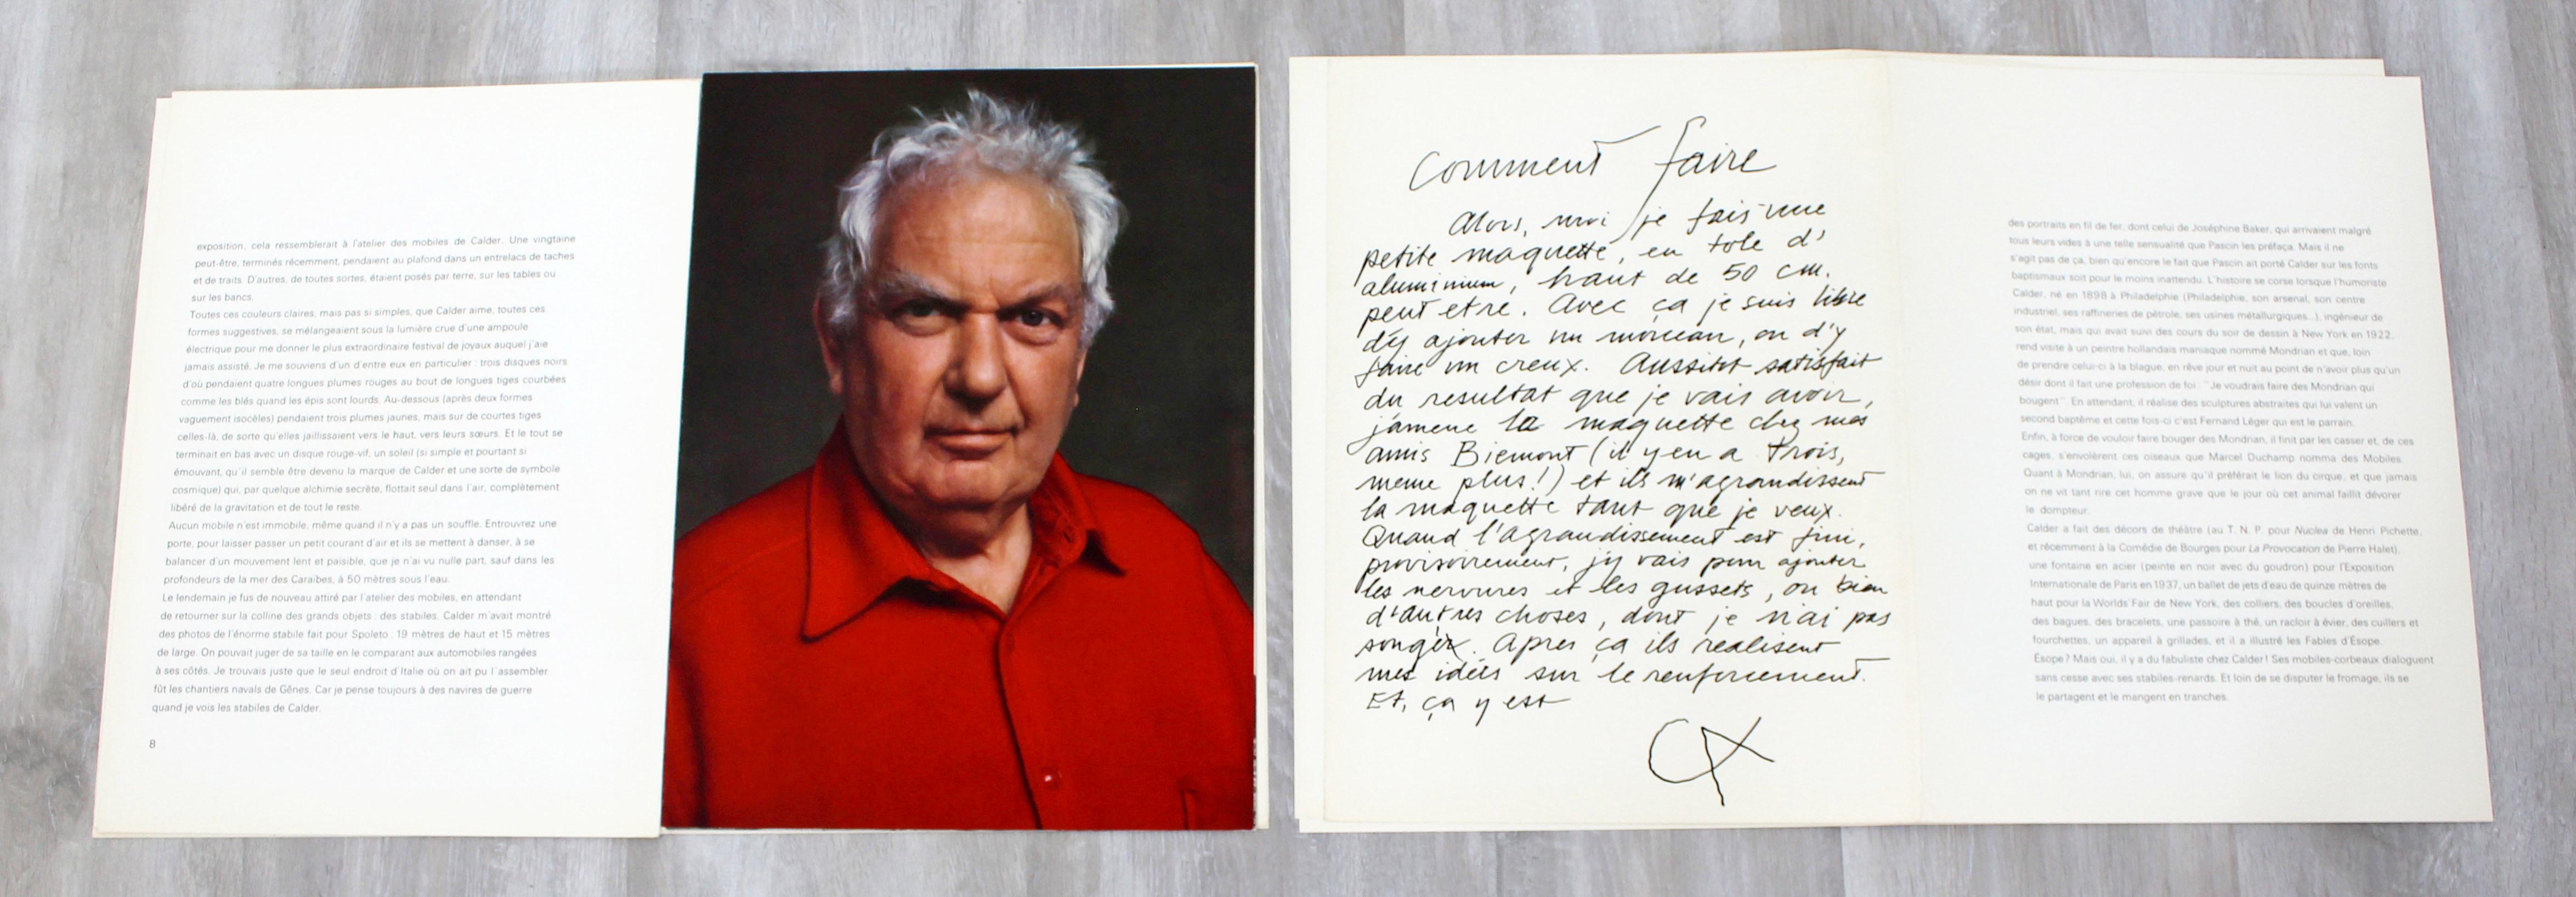 exposition, cela ressemblerait à l'atelier des mobiles de Calder. Une vingtaine
peut-être, terminés récemment, pendaient au plafond dans un entrelacs de taches
et de traits. D'autres, de toutes sortes, étaient posés par terre, sur les tables ou
sur les bancs.
Toutes ces couleurs claires, mais pas si simples, que Calder aime, toutes ces
formes suggestives, se mélangeaient sous la lumière crue d'une ampoule
électrique pour me donner le plus extraordinaire festival de joyaux auquel j'aie
jamais assisté. Je me souviens d'un d'entre eux en particulier : trois disques noirs
d'où pendaient quatre longues plumes rouges au bout de longues tiges courbées
comme les blés quand les épis sont lourds. Au-dessous (après deux formes
vaguement isocèles) pendaient trois plumes jaunes, mais sur de courtes tiges
celles-là, de sorte qu'elles jaillissaient vers le haut, vers leurs sœurs. Et le tout se
terminait en bas avec un disque rouge-vif, un soleil (si simple et pourtant si
émouvant, qu'il semble être devenu la marque de Calder et une sorte de symbole
cosmique) qui, par quelque alchimie secrète, flottait seul dans l'air, complètement
libéré de la gravitation et de tout le reste.
Aucun mobile n'est immobile, même quand il n'y a pas un souffle. Entrouvrez une
porte, pour laisser passer un petit courant d'air et ils se mettent à danser, à se
balancer d'un mouvement lent et paisible, que je n'ai vu nulle part, sauf dans les
profondeurs de la mer des Caraïbes, à 50 mètres sous l'eau.
Le lendemain je fus de nouveau attiré par l'atelier des mobiles, en attendant
de retourner sur la colline des grands objets : des stabiles. Calder m'avait montré
des photos de l'énorme stabile fait pour Spoleto : 19 mètres de haut et 15 mètres
de large. On pouvait juger de sa taille en le comparant aux automobiles rangées
à ses côtés. Je trouvais juste que le seul endroit d'Italie où on ait pu l'assembler
fût les chantiers navals de Gênes. Car je pense toujours à des navires de guerre
quand je vois les stabiles de Calder.
8
Comment faire
Alors, moi je fais une
petite maquette, en tole d'
aluminium, haut de 50 cm.
peut etre. Avec ça je suis libre
d'y ajouter un morceau, ou d'y
faire un creux. Aussitot satisfait
du resultat que je vais avoir,
j'amene la maquette chez mes
amis Biemont (il y en a trois,
meme plus!) et ils m'agrandissent
la maquette tant que je veux.
Quand l'agrandissement est fini,
provisoirement, j'y vais pour ajouter
les nervures et les gussets, ou bien
d'autres choses, dont je n'ai pas
songé. Apres ça ils realisent
mes idées sur le renforcement.
Et, ça y est
CA
des portraits en fil de fer, dont celui de Joséphine Baker, qui arrivaient malgré
tous leurs vides à une telle sensualité que Pascin les préfaça. Mais il ne
s'agit pas de ça, bien qu'encore le fait que Pascin ait porté Calder sur les fonts
baptismaux soit pour le moins inattendu. L'histoire se corse lorsque l'humoriste
Calder, né en 1898 à Philadelphie (Philadelphie, son arsenal, son centre
industriel, ses raffineries de pétrole, ses usines métallurgiques...), ingénieur de
son état, mais qui avait suivi des cours du soir de dessin à New York en 1922,
rend visite à un peintre hollandais maniaque nommé Mondrian et que, loin
de prendre celui-ci à la blague, en rêve jour et nuit au point de n'avoir plus qu'un
désir dont il fait une profession de foi : "Je voudrais faire des Mondrian qui
bougent". En attendant, il réalise des sculptures abstraites qui lui valent un
second baptême et cette fois-ci c'est Fernand Léger qui est le parrain.
Enfin, à force de vouloir faire bouger des Mondrian, il finit par les casser et, de ces
cages, s'envolèrent ces oiseaux que Marcel Duchamp nomma des Mobiles.
Quant à Mondrian, lui, on assure qu'il préférait le lion du cirque, et que jamais
on ne vit tant rire cet homme grave que le jour où cet animal faillit dévorer
le dompteur.
Calder a fait des décors de théâtre (au T. N. P. pour Nuclea de Henri Pichette,
et récemment à la Comédie de Bourges pour La Provocation de Pierre Halet),
une fontaine en acier (peinte en noir avec du goudron) pour l'Exposition
Internationale de Paris en 1937, un ballet de jets d'eau de quinze mètres de
haut pour la Worlds' Fair de New York, des colliers, des boucles d'oreilles,
des bagues, des bracelets, une passoire à thé, un racloir à évier, des cuillers et
fourchettes, un appareil à grillades, et il a illustré les Fables d'Ésope.
Ésope ? Mais oui, il y a du fabuliste chez Calder ! Ses mobiles-corbeaux dialoguent
sans cesse avec ses stabiles-renards. Et loin de se disputer le fromage, ils se
le partagent et le mangent en tranches.